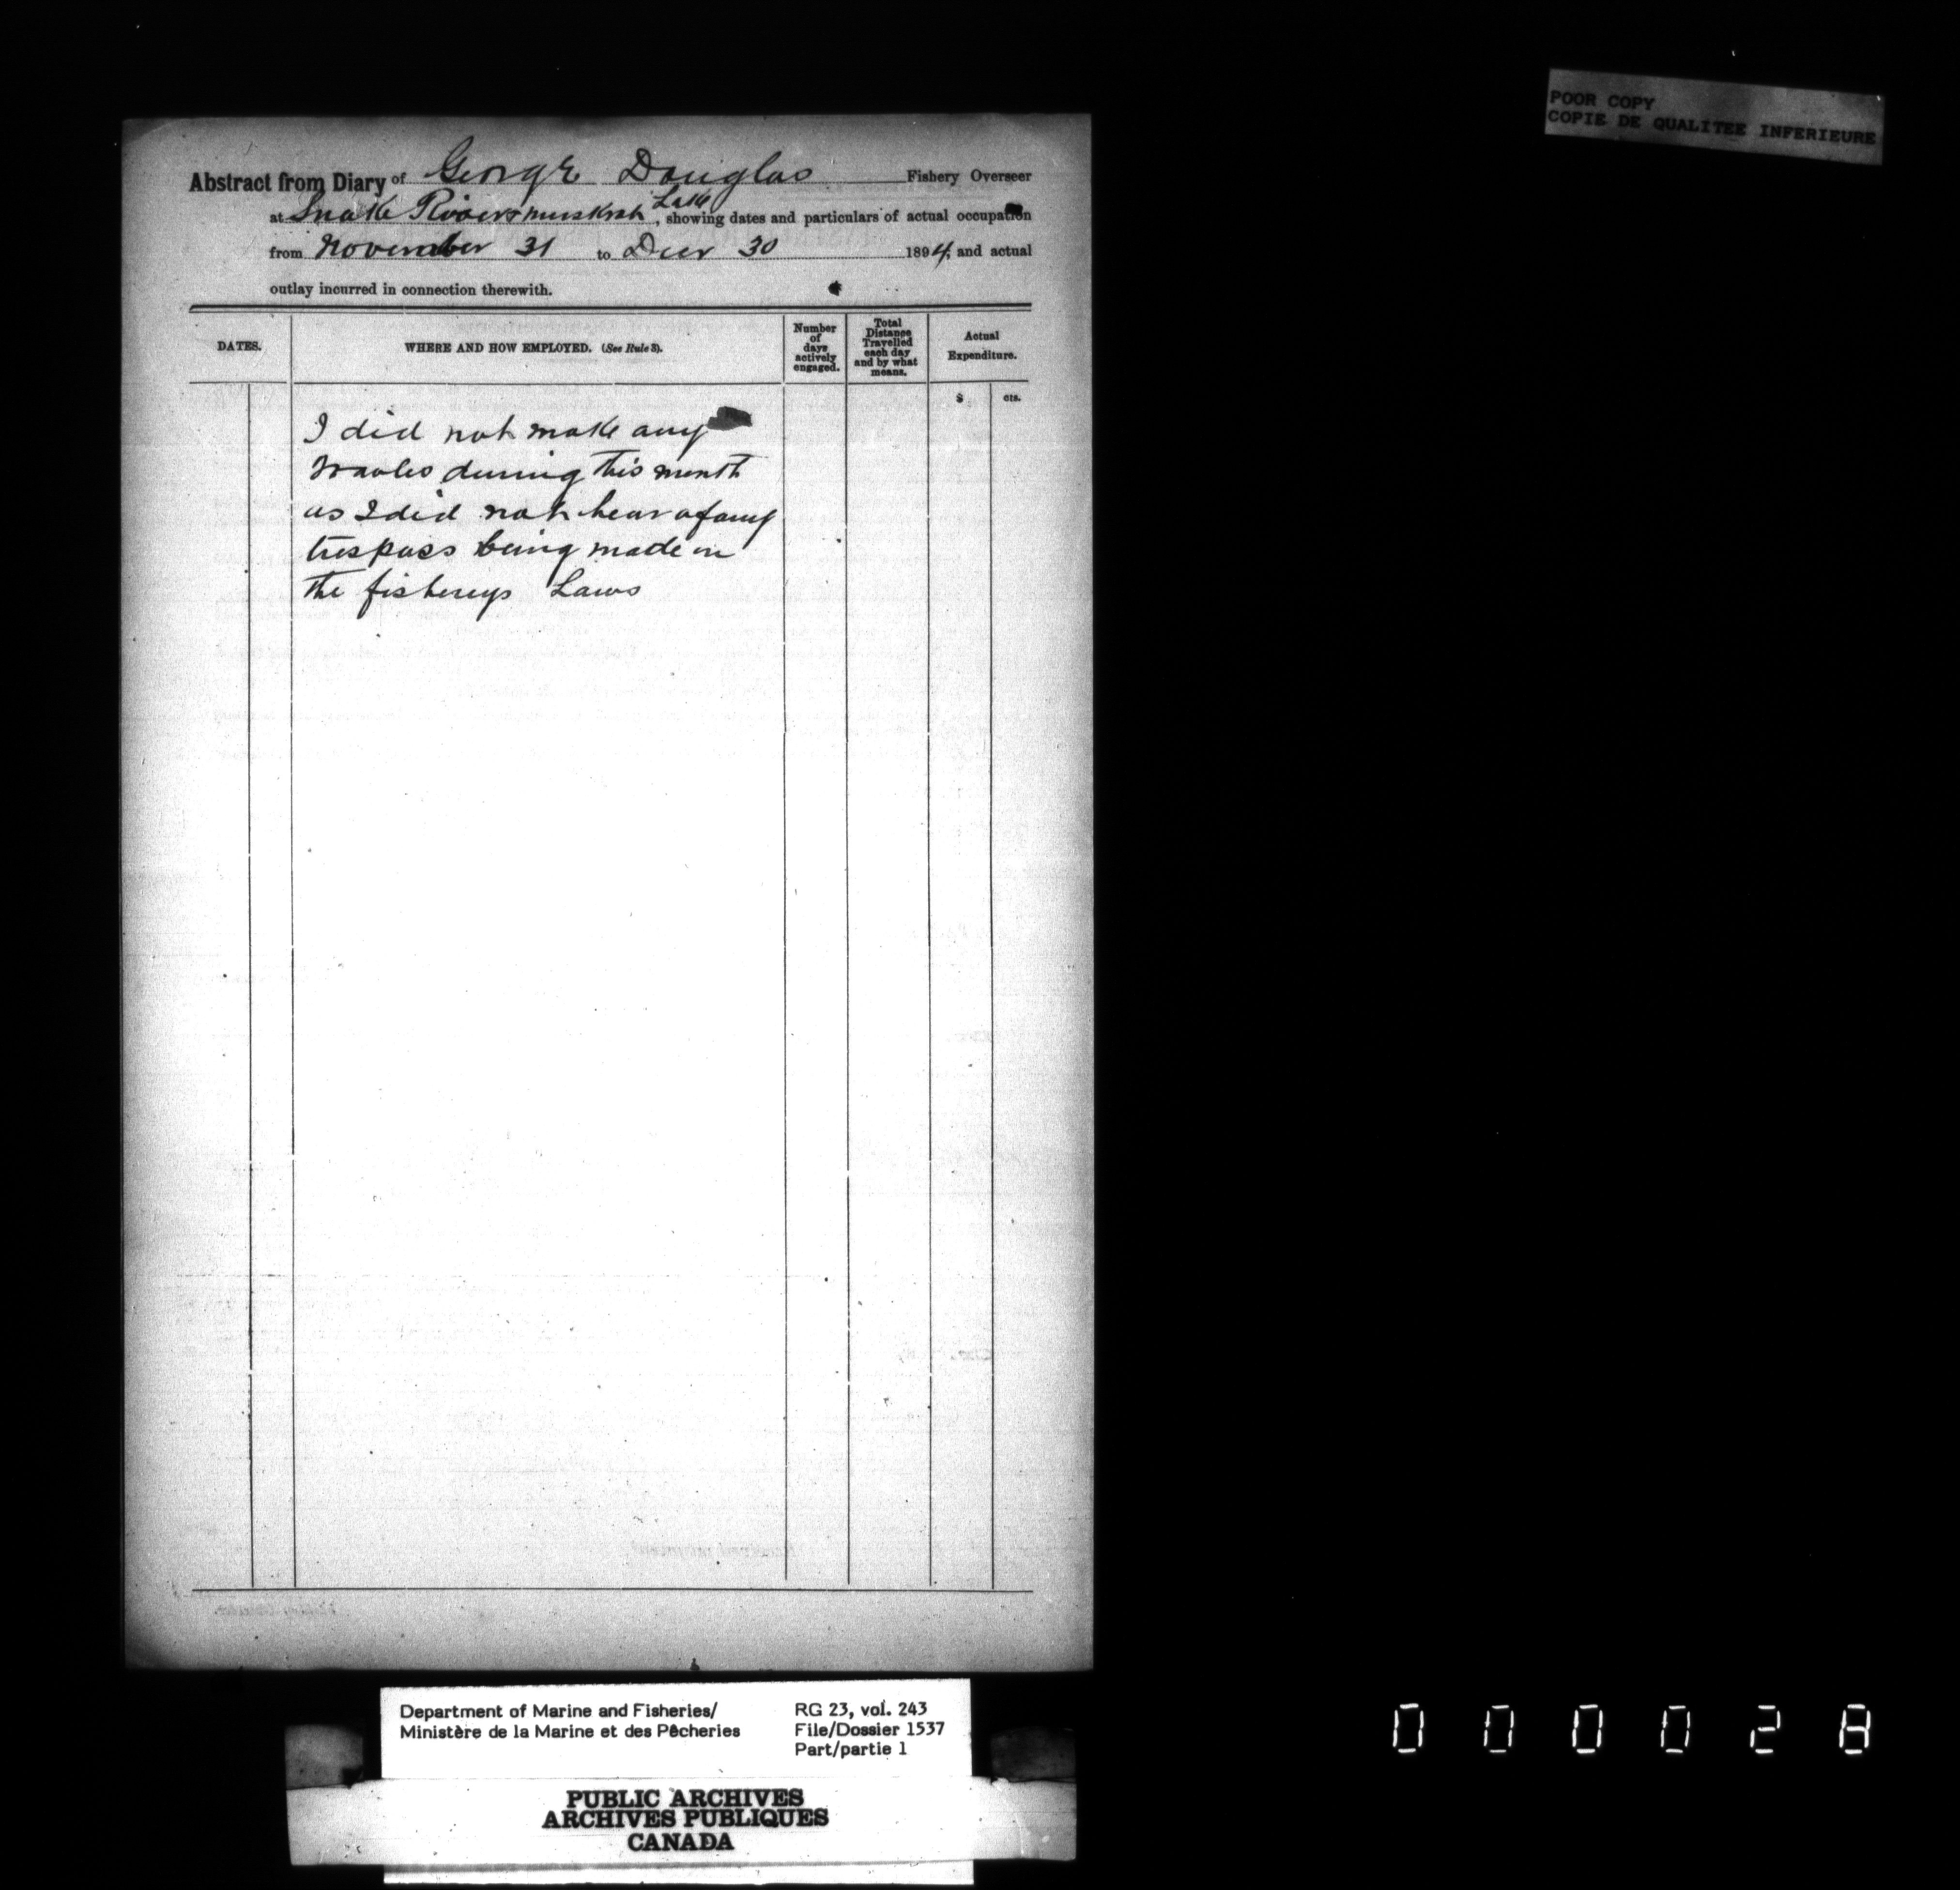 POOR COPY
COPIE DE QUALITEE INFERIEURE
Abstract from Diary of George Douglas Fishery Overseer
at Snake River & muskrat Lake, showing dates and particulars of actual occupation
from November 31 to Decr 30 1894, and actual
outlay incurred in connection therewith.
DATES.
WHERE AND HOW EMPLOYED. (See Rule 3).
Number of days actively engaged.
Total Distance Travelled each day and by what means.
Actual Expenditure.
$ cts.
I did not make any
travles during this month
as I did not hear of any
trespass being made on
the fishereys Laws
Department of Marine and Fisheries/
Ministère de la Marine et des Pêcheries
RG 23, vol. 243
File/Dossier 1537
Part/partie 1
PUBLIC ARCHIVES
ARCHIVES PUBLIQUES
CANADA
000028